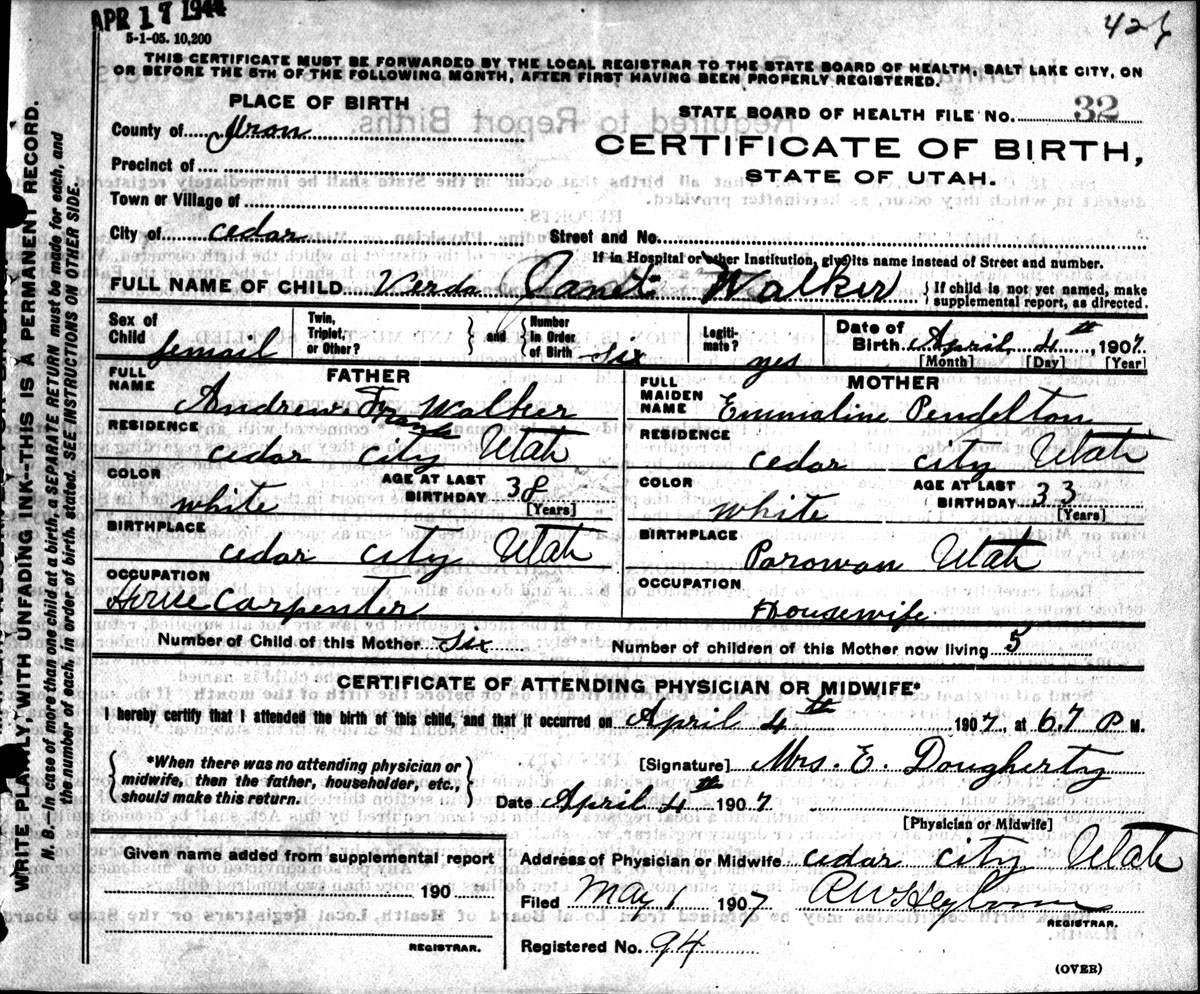 APR 17 1944
426
5-1-05. 10,200
THIS CERTIFICATE MUST BE FORWARDED BY THE LOCAL REGISTRAR TO THE STATE BOARD OF HEALTH, SALT LAKE CITY, ON
OR BEFORE THE 5TH OF THE FOLLOWING MONTH, AFTER FIRST HAVING BEEN PROPERLY REGISTERED.
PLACE OF BIRTH
STATE BOARD OF HEALTH FILE NO. 32
County of Iron
CERTIFICATE OF BIRTH,
Precinct of
STATE OF UTAH.
Town or Village of
City of cedar Street and No.
If in Hospital or other Institution, give its name instead of Street and number.
FULL NAME OF CHILD Verda Janet Walker { If child is not yet named, make
supplemental report, as directed.
Sex of Child femail Twin, Triplet, or Other? } and { Number in Order of Birth six Legiti-mate? yes Date of Birth April 4th, 1907
[Month] [Day] [Year]
FATHER MOTHER
FULL NAME Andrew Frank Walker FULL MAIDEN NAME Emmaline Pendelton
RESIDENCE cedar city Utah RESIDENCE cedar city Utah
COLOR white AGE AT LAST BIRTHDAY 38 [Years] COLOR white AGE AT LAST BIRTHDAY 33 [Years]
BIRTHPLACE cedar city Utah BIRTHPLACE Parowan Utah
OCCUPATION Carpenter OCCUPATION Housewife
Number of Child of this Mother six Number of children of this Mother now living 5
CERTIFICATE OF ATTENDING PHYSICIAN OR MIDWIFE*
I hereby certify that I attended the birth of this child, and that it occurred on April 4th 1907, at 6.7 P M.
{ *When there was no attending physician or
midwife, then the father, householder, etc.,
should make this return. }
[Signature] Mrs. E. Dougherty
Date April 4th 1907
[Physician or Midwife]
Given name added from supplemental report
190
REGISTRAR.
Address of Physician or Midwife cedar city Utah
Filed May 1 1907
REGISTRAR.
Registered No. 94
(OVER)
WRITE PLAINLY WITH UNFADING INK--THIS IS A PERMANENT RECORD.
N. B.--In case of more than one child at a birth, a SEPARATE RETURN must be made for each, and
the number of each, in order of birth, stated. SEE INSTRUCTIONS ON OTHER SIDE.